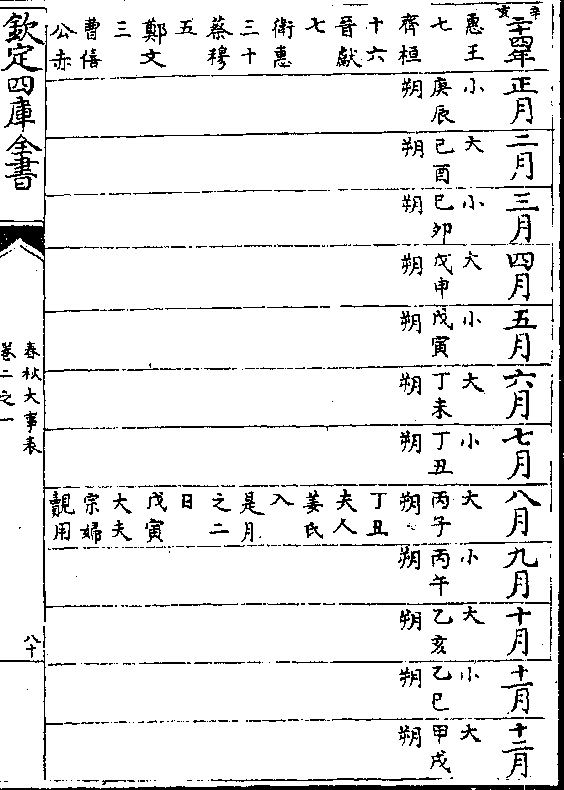 辛亥
二十四年
惠王
七
齊桓
十六
晉獻
七
衛惠
三十
蔡穆
五
鄭文
三
曹僖
公赤
正月
小
庚辰
朔
二月
大
己酉
朔
三月
小
己卯
朔
四月
大
戊申
朔
五月
小
戊寅
朔
六月
大
丁未
朔
七月
小
丁丑
朔
八月
大
丙子
朔
丁丑
夫人
姜氏
入
是月
之二
日
戊寅
大夫
宗婦
覿用
九月
小
丙午
朔
十月
大
乙亥
朔
十一月
小
乙巳
朔
十二月
大
甲戌
朔
欽定四庫全書
春秋大事表
卷二之一
八十